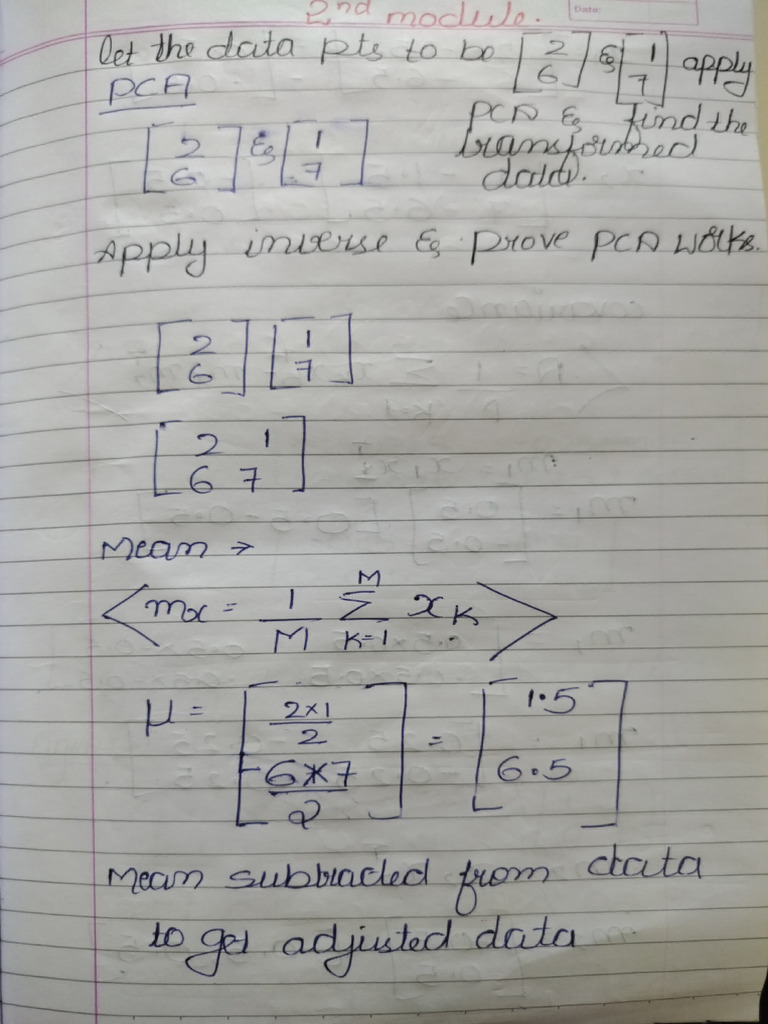 2nd module.
Date:
let the data pts to be [2 6] & [1 7] apply
PCA
PCA & find the
transformed
data.
[2 6] & [1 7]
Apply inverse & prove PCA works.
[2 6] [1 7]
[2 1
6 7]
Mean →
< mx = 1/M Σ(K=1 to M) xK >
μ = [2×1/2 6×7/2] = [1.5 6.5]
Mean subtracted from data
to get adjusted data